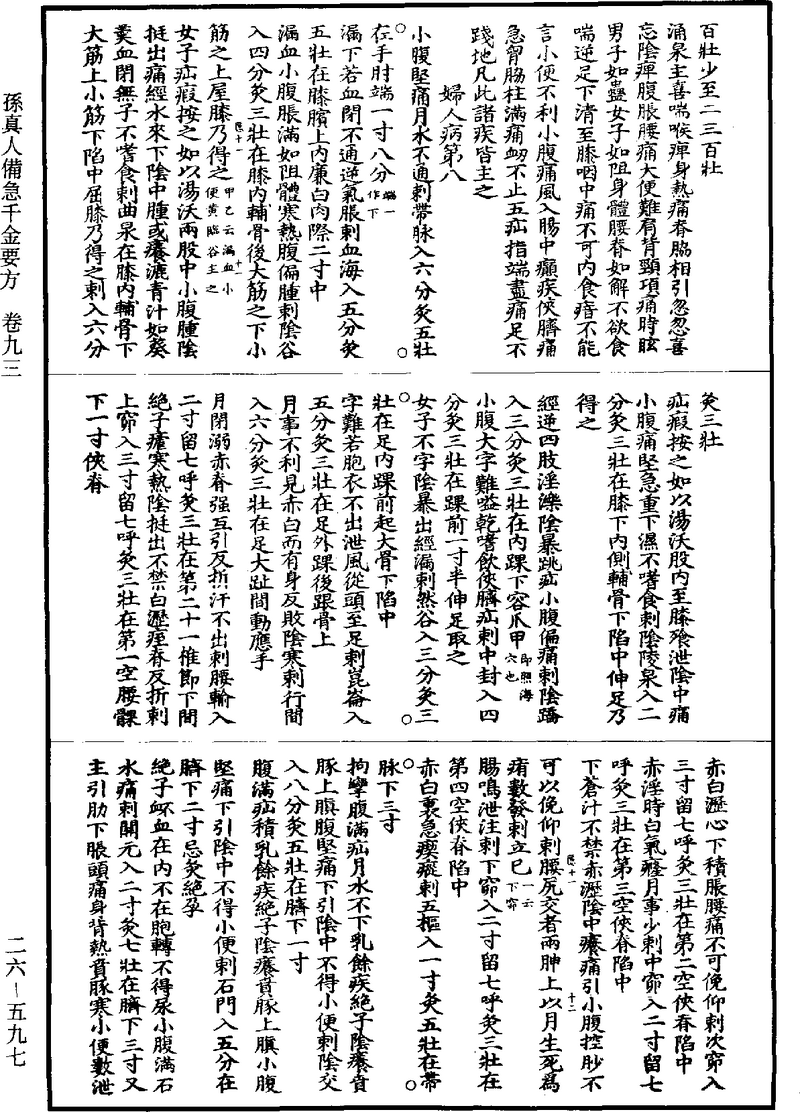 百壯少至二三百壯
涌泉主喜喘喉痺身熱痛脊脇相引忽忽喜
忘陰痺腹脹腰痛大便難肩背頸項痛時眩
男子如蠱女子如阻身體腰脊如解不欲食
喘逆足下清至膝咽中痛不可內食瘖不能
言小便不利小腹痛風入腸中癲疾俠臍痛
急胷脇柱滿痛衂不止五疝指端盡痛足不
踐地凡此諸疾皆主之
婦人病第八
小腹堅痛月水不通刺帶脉入六分灸五壯
在手肘端一寸八分端一作下
漏下若血閉不通逆氣脹刺血海入五分灸
五壯在膝臏上內廉白肉際二寸中
漏血小腹脹滿如阻體寒熱腹偏腫刺陰谷
入四分灸三壯在膝內輔骨後大筋之下小
筋之上屋膝乃得之甲乙云漏血小便黃陰谷主之
女子疝瘕按之如以湯沃兩股中小腹腫陰
挺出痛經水來下陰中腫或癢漉青汁如葵
羹血閉無子不嗜食刺曲泉在膝內輔骨下
大筋上小筋下陷中屈膝乃得之刺入六分
灸三壯
疝瘕按之如以湯沃股內至膝飧泄陰中痛
小腹痛堅急重下濕不嗜食刺陰陵泉入二
分灸三壯在膝下內側輔骨下陷中伸足乃
得之
經逆四肢淫濼陰暴跳疝小腹偏痛刺陰蹻
入三分灸三壯在內踝下容爪甲即照海穴也
小腹大字難嗌乾嗜飲俠臍疝刺中封入四
分灸三壯在踝前一寸半伸足取之
女子不字陰暴出經漏刺然谷入三分灸三
壯在足內踝前起大骨下陷中
字難若胞衣不出泄風從頭至足刺崑崙入
五分灸三壯在足外踝後跟骨上
月事不利見赤白而有身反敗陰寒刺行間
入六分灸三壯在足大趾間動應手
月閉溺赤脊強互引反折汗不出刺腰輸入
二寸留七呼灸三壯在第二十一椎節下間
絶子瘧寒熱陰挺出不禁白瀝痓脊反折刺
上窌入三寸留七呼灸三壯在第一空腰髁
下一寸俠脊
赤白瀝心下積脹腰痛不可俛仰刺次窌入
三寸留七呼灸三壯在第二空俠脊陷中
赤淫時白氣癃月事少刺中窌入二寸留七
呼灸三壯在第三空俠脊陷中
下蒼汁不禁赤瀝陰中癢痛引小腹控䏚不
可以俛仰刺腰尻交者兩胂上以月生死爲
痏數發刺立已一云下窌
腸鳴泄注刺下窌入二寸留七呼灸三壯在
第四空俠脊陷中
赤白裏急瘈瘲刺五樞入一寸灸五壯在帶
脉下三寸
拘攣腹滿疝月水不下乳餘疾絶子陰癢賁
豚上䐜腹堅痛下引陰中不得小便刺陰交
入八分灸五壯在臍下一寸
腹滿疝積乳餘疾絶子陰癢賁豚上䐜小腹
堅痛下引陰中不得小便刺石門入五分在
臍下二寸忌灸絶孕
絶子衃血在內不在胞轉不得尿小腹滿石
水痛刺關元入二寸灸七壯在臍下三寸又
主引肋下脹頭痛身背熱賁豚寒小便數泄
孫真人備急千金要方　卷九三
二六—五九七